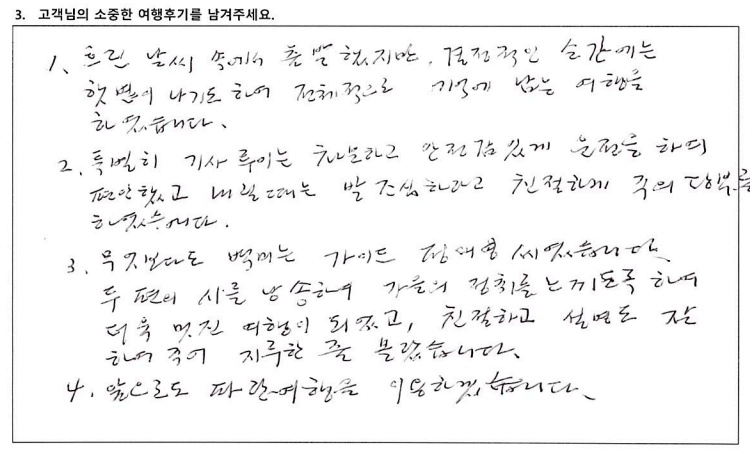 3. 고객님의 소중한 여행후기를 남겨주세요.
1. 흐린 날씨 속에서 출발했지만, 결정적인 순간에는
햇볕이 나기도 하여 전체적으로 기억에 남는 여행을
하였습니다.
2. 특별히 기사 루이는 차분하고 안정감있게 운전을 하여
편안했고 내릴때는 발조심하라고 친절하게 주의 당부를
하였습니다.
3. 무엇보다도 백미는 가이드 씨였습니다.
두 편의 시를 낭송하여 가을의 정취를 느끼도록 하여
더욱 멋진 여행이 되었고, 친절하고 설명도 잘
하여주어 지루한 줄 몰랐습니다.
4. 앞으로도 파란여행을 이용하겠습니다.